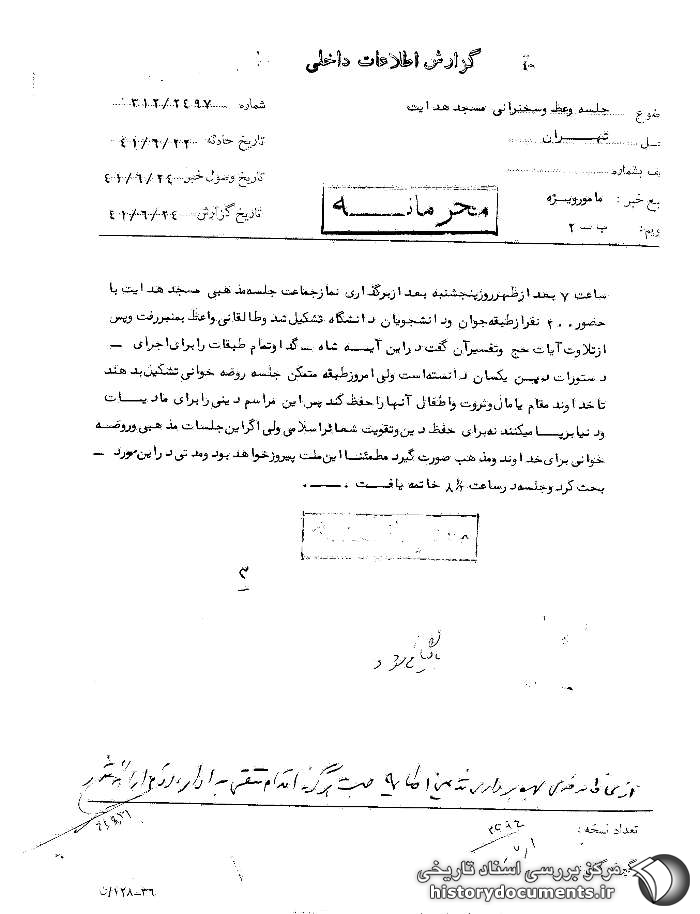 گزارش اطلاعات داخلی
ضوع جلسه وعظ وسخنرانی مسجد هدایت
شماره ۳۱۲/۲۴۹۷
تهران
تاریخ حادثه ۴۱/۶/۲۲
بشماره
تاریخ وصول خبر ۴۱/۶/۲۴
بع خبر : مامورویژه
محرمانه
تاریخ گزارش ۴۱/۶/۲۴
ویم: ب ـ ۲
ساعت ۷ بعد از ظهرروزپنجشنبه بعد ازبرگذاری نمازجماعت جلسه مذهبی مسجد هدایت با
حضور ۲۰۰ نفرازطبقه جوان ودانشجویان دانشگاه تشکیل شد وطالقانی واعظ بمنبررفت وپس
ازتلاوت آیات حج وتفسیرآن گفت دراین آیه شاه ـ گدا وتمام طبقات رابرای اجرای ـ
دستورات میهن یکسان دانسته است ولی امروزطبقه متمکن جلسه روضه خوانی تشکیل بدهند
تاخداوند مقام یامال وثروت واطفال آنهاراحفظ کند پس این مراسم دینی رابرای مادیات
ودنیابرپا میکنند نه برای حفظ دین وتقویت شعائراسلامی ولی اگراین جلسات مذهبی وروضه
خوانی برای خداوند ومذهب صورت گیرد مطمئنا این ملت پیروزخواهد بود ومدتی دراین مورد ـ
بحث کرد وجلسه درساعت ۸/۵ خاتمه یافت .
۳
بایگانی شود
تعداد نسخه :
۳۶ـ۱۲۸/ن
مرکز بررسی اسناد تاریخی
historydocuments.ir